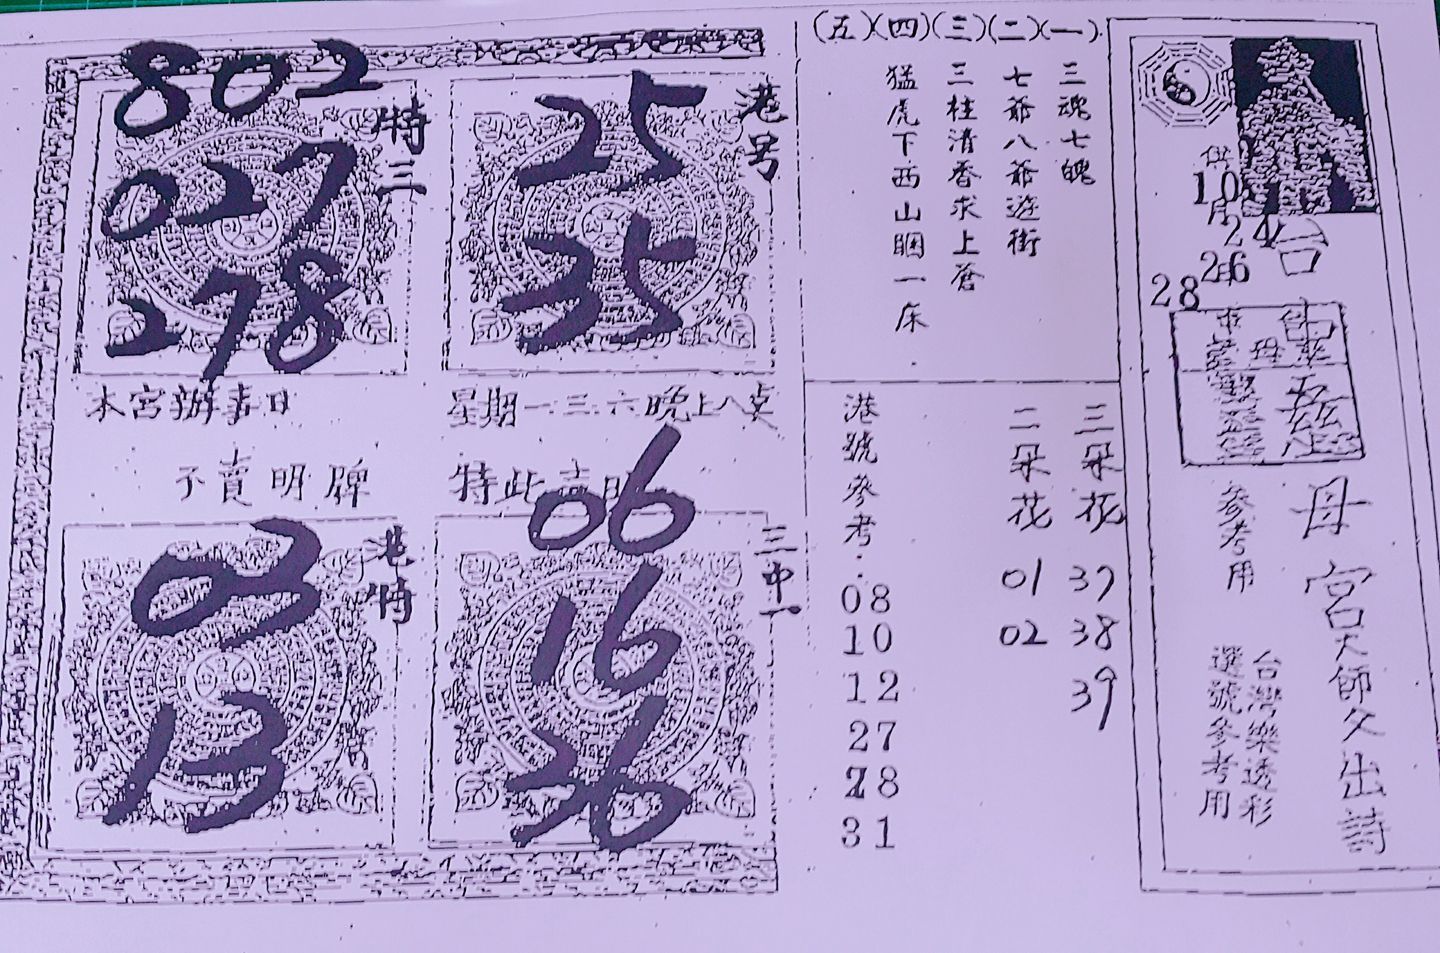 (五)(四)(三)(二)(一)
三魂七魄
七爺八爺遊街
三柱清香求上蒼
猛虎下西山睏一床
特三
802
027
278
港号
25
35
本宮辦事日
星期一三六晚上八点
不賣明牌
特此声明
港特
03
13
三中一
06
16
36
三朵花
37
38
39
二朵花
01
02
港號參考:
08
10
12
27
28
31
供
10月
24
26
28
台
母宮天師爻出詩
參考用
台灣樂透彩
選號參考用